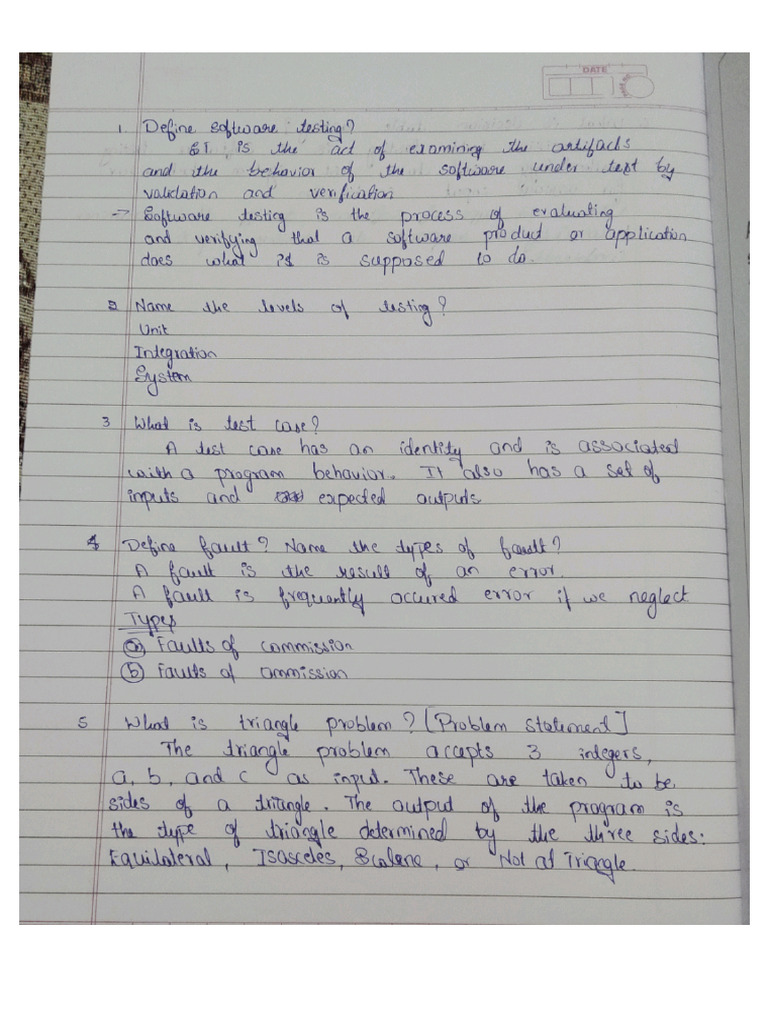 DATE
1. Define software testing?
ST is the act of examining the artifacts
and the behavior of the software under test by
validation and verification
→ Software testing is the process of evaluating
and verifying that a software product or application
does what it is supposed to do.
2 Name the levels of testing?
Unit
Integration
System
3 What is test case?
A test case has an identity and is associated
with a program behavior. It also has a set of
inputs and expected outputs
4 Define fault? Name the types of fault?
A fault is the result of an error.
A fault is frequently occured error if we neglect.
Types
(a) Faults of commission
(b) Faults of ommission
5 What is triangle problem? [Problem statement]
The triangle problem accepts 3 integers,
a, b, and c as input. These are taken to be
sides of a triangle. The output of the program is
the type of triangle determined by the three sides:
Equilateral, Isosceles, Scalene, or Not at Triangle.